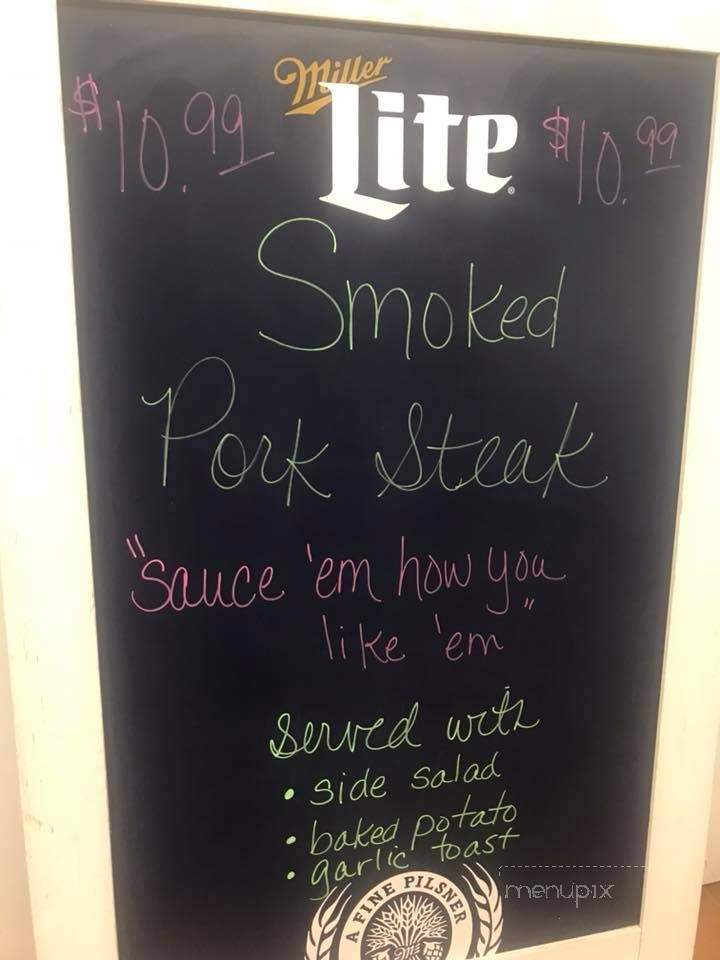 Miller
$10.99 Lite $10.99
Smoked
Pork Steak
"Sauce 'em how you
like 'em"
Served with
• side salad
• baked potato
• garlic toast
A FINE PILSNER
menupix